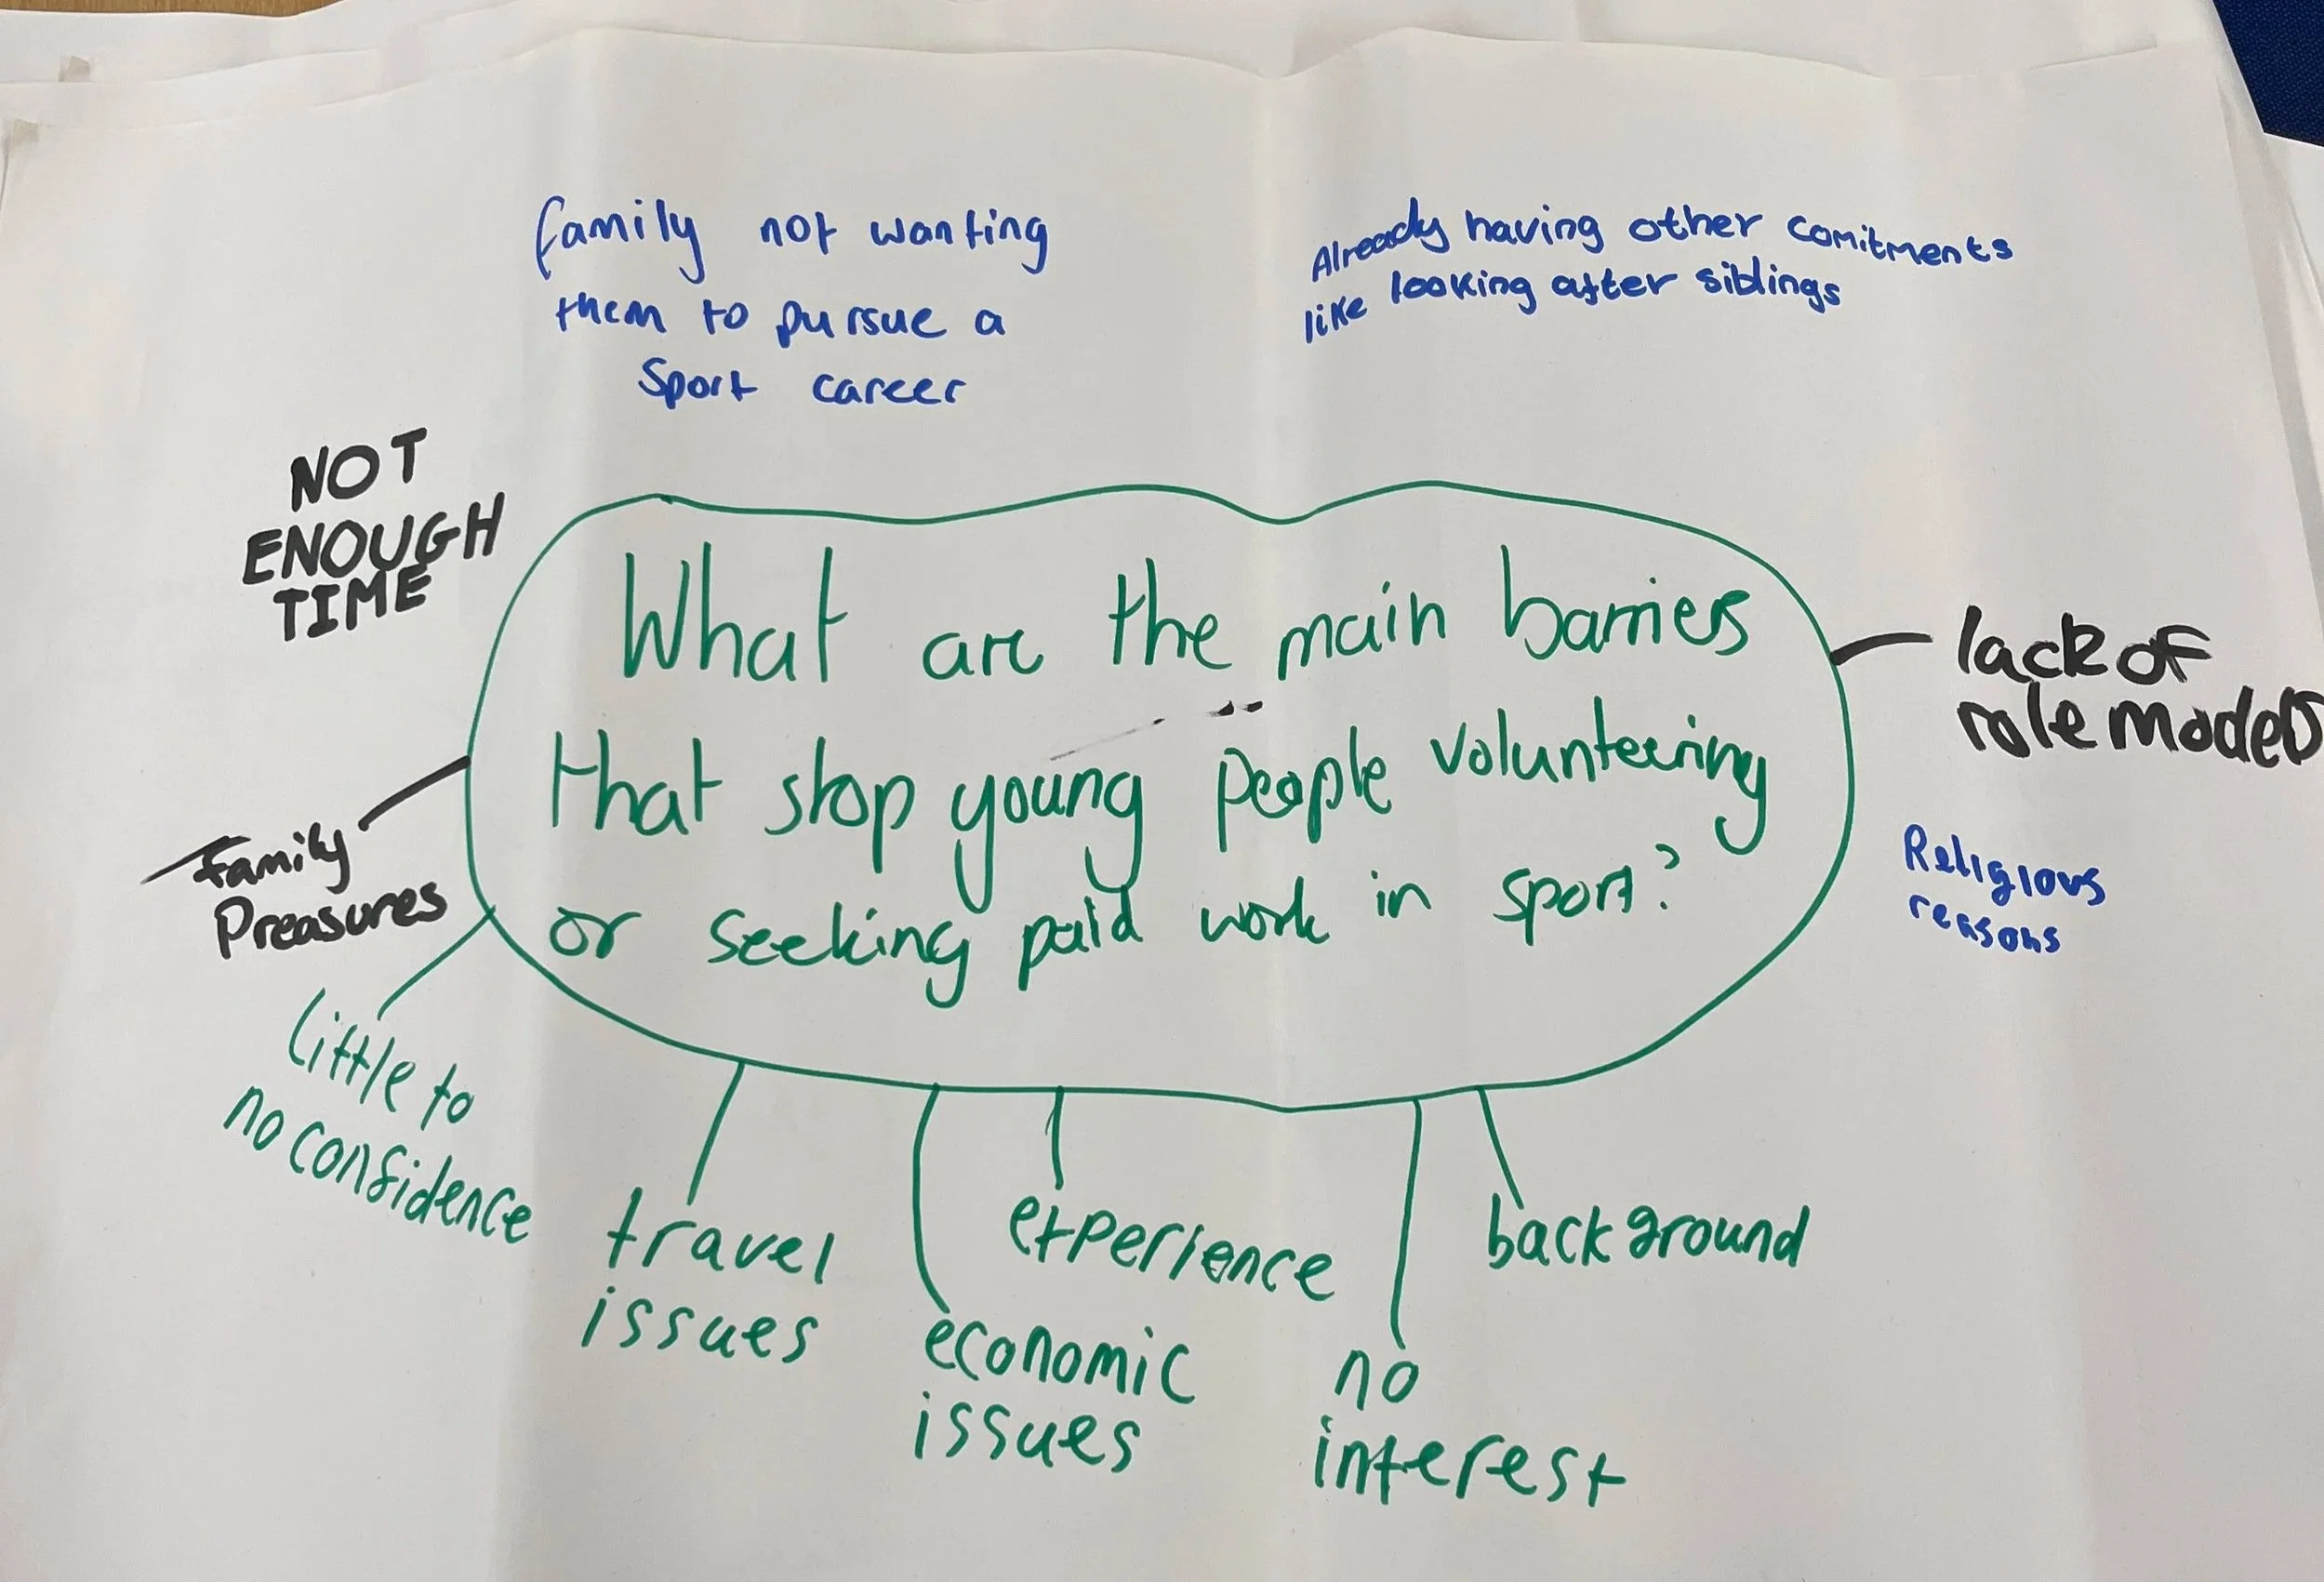 family not wanting
them to pursue a
Sport career
Already having other comitments
like looking after siblings
NOT
ENOUGH
TIME
What are the main barries
that stop young people volunteering
or seeking paid work in sport?
lack of
role models
Religious
reasons
Family
Preasures
little to
no confidence
travel
issues
economic
issues
experience
no
interest
background